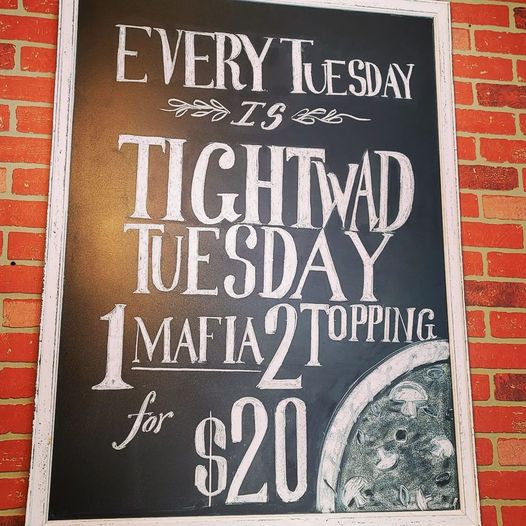 EVERY TUESDAY
IS
TIGHTWAD
TUESDAY
1 MAFIA 2 TOPPING
for
$20